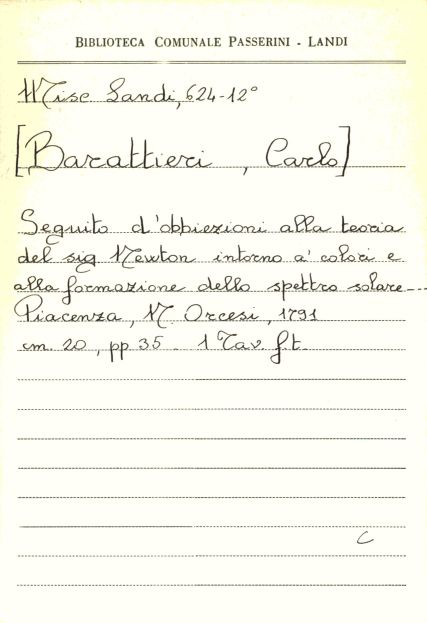 BIBLIOTECA COMUNALE PASSERINI - LANDI
Misc Landi, 624-12°
[Barattieri, Carlo]
Seguito d'obbiezioni alla teoria
del sig Newton intorno a' colori e
alla formazione dello spettro solare---
Piacenza, N. Orcesi, 1791
cm. 20, pp 35 - 1 Tav. f t.
C